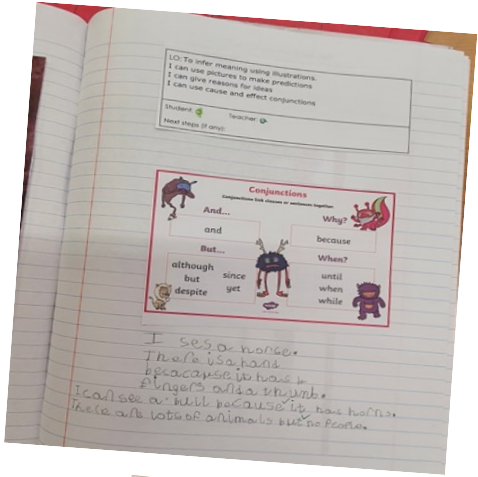 LO: To infer meaning using illustrations.
I can use pictures to make predictions
I can give reasons for ideas
I can use cause and effect conjunctions
Student:
Teacher:
Next steps (if any):
Conjunctions
Conjunctions link clauses or sentences together.
And...
and
But...
although
but
despite
since
yet
Why?
because
When?
until
when
while
I ses a horse.
There is a hand
becacause it has
fingers and a thumb.
I can see a bull because it has horns.
There are lots of animals but no people.